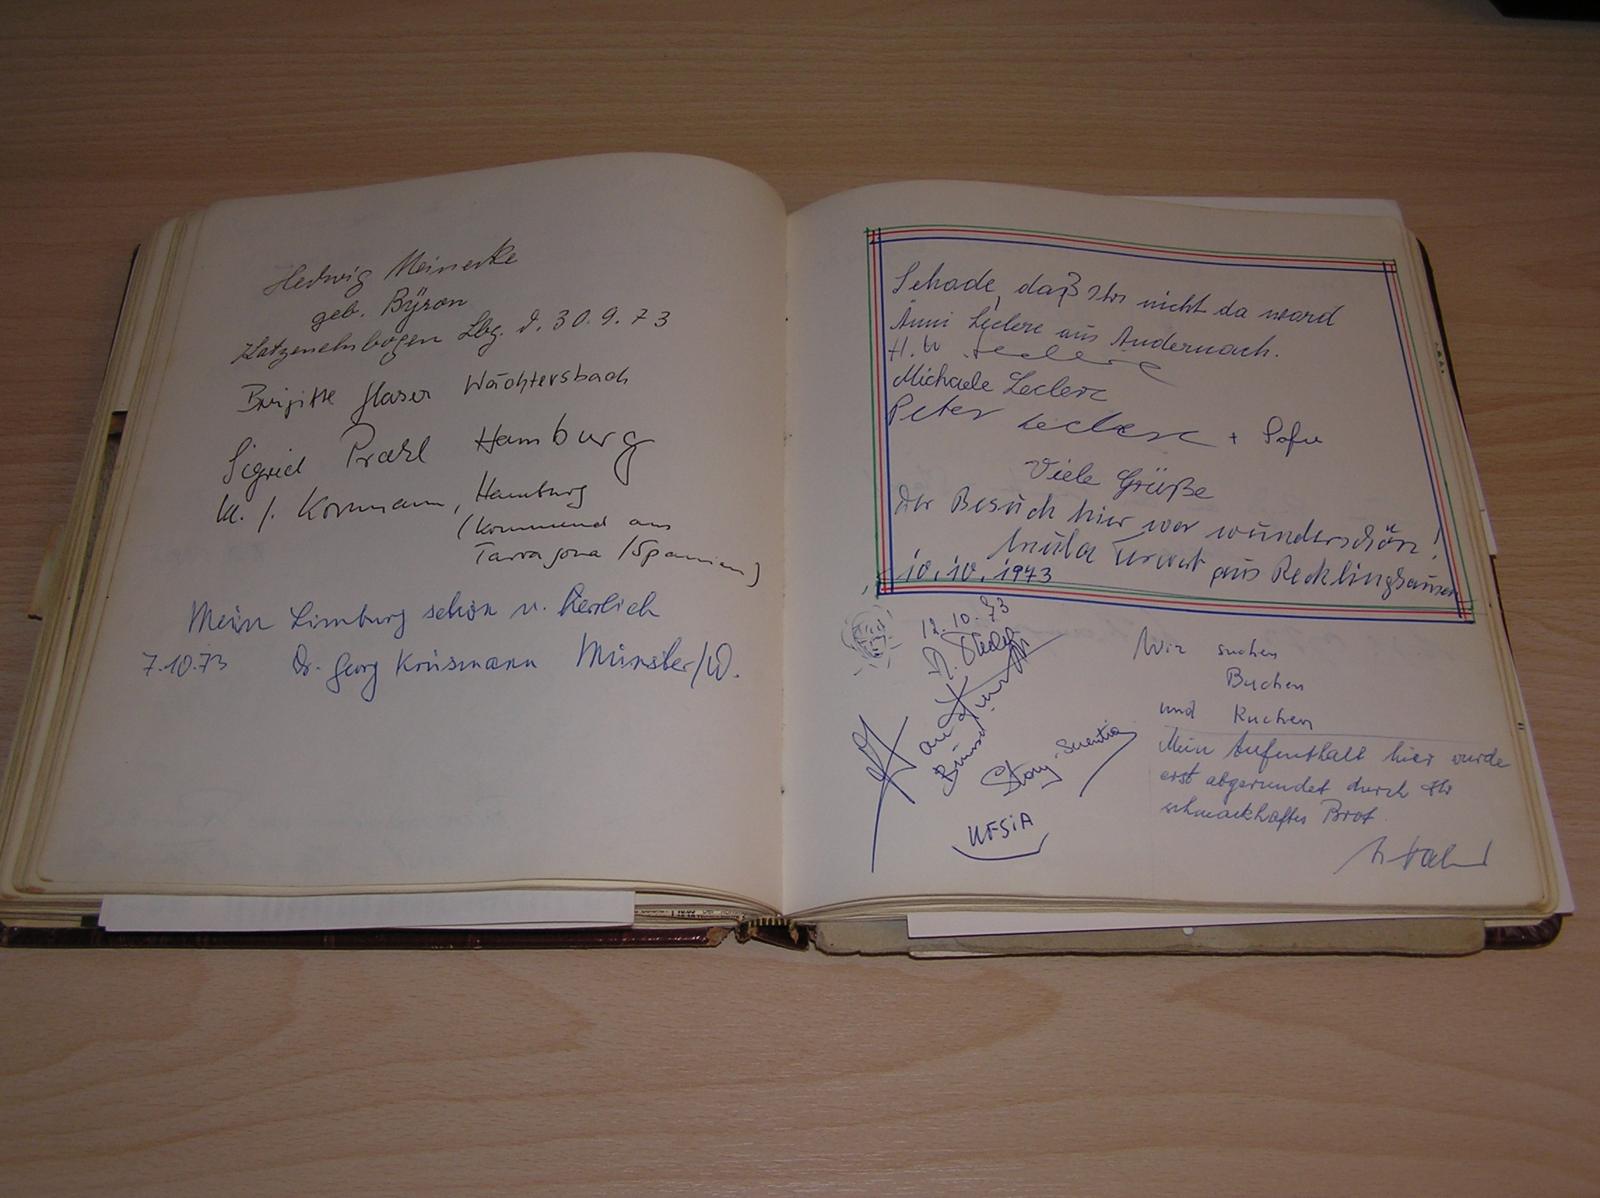 Hedwig Meinerke
geb. Byron
Katzenelnbogen Lbg. d. 30.9.73
Brigitte Glaser Wächtersbach
Sigrid Prahl Hamburg
Kormann, Hamburg
(kommend aus
Tarragona /Spanien)
Mein Limburg schön u. herrlich
7.10.73 Dr. Georg Krüsmann Münster/W.
Schade, daß Ihr nicht da ward
Änni Leclerc aus Andernach.
H. W Leclerc
Michaele Leclerc
Peter Leclerc +
Viele Grüße
Der Besuch hier war wunderschön!
aus Recklinghausen
10.10.1973
12.10.73
UFSiA
Wir suchen
Buchen
und Kuchen
Mein Aufenthalt hier wurde
erst abgerundet durch Ihr
schmackhaftes Brot.